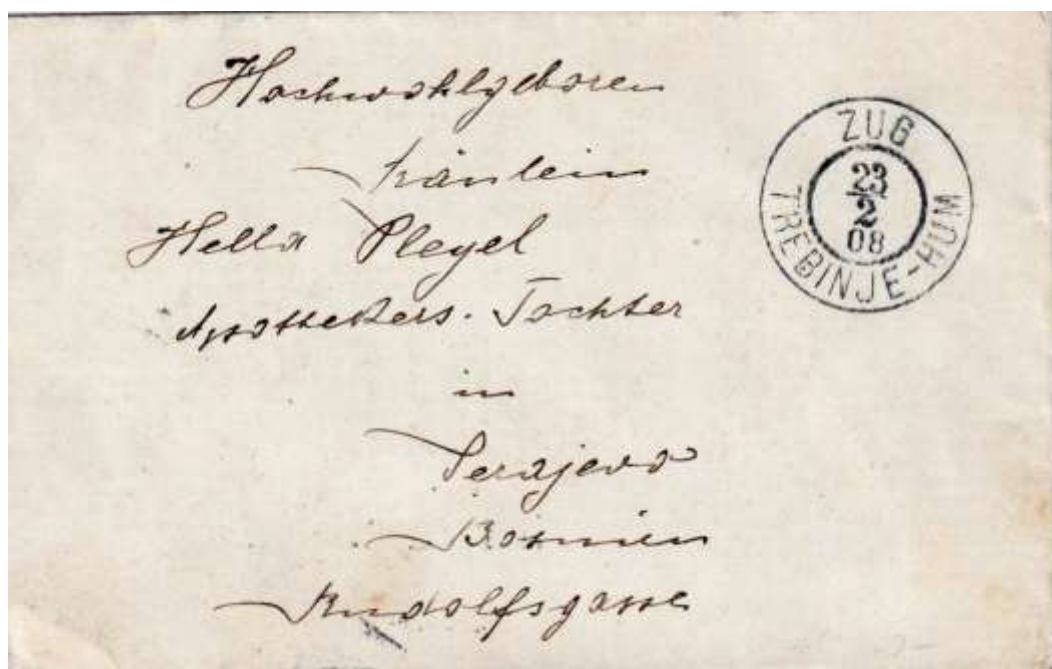 Hochwohlgeboren
Fräulein
Hella Pleyel
Apothekers. Tochter
in
Serajevo
Bosnien
Rudolfsgasse
ZUG
23
2
08
TREBINJE-HUM